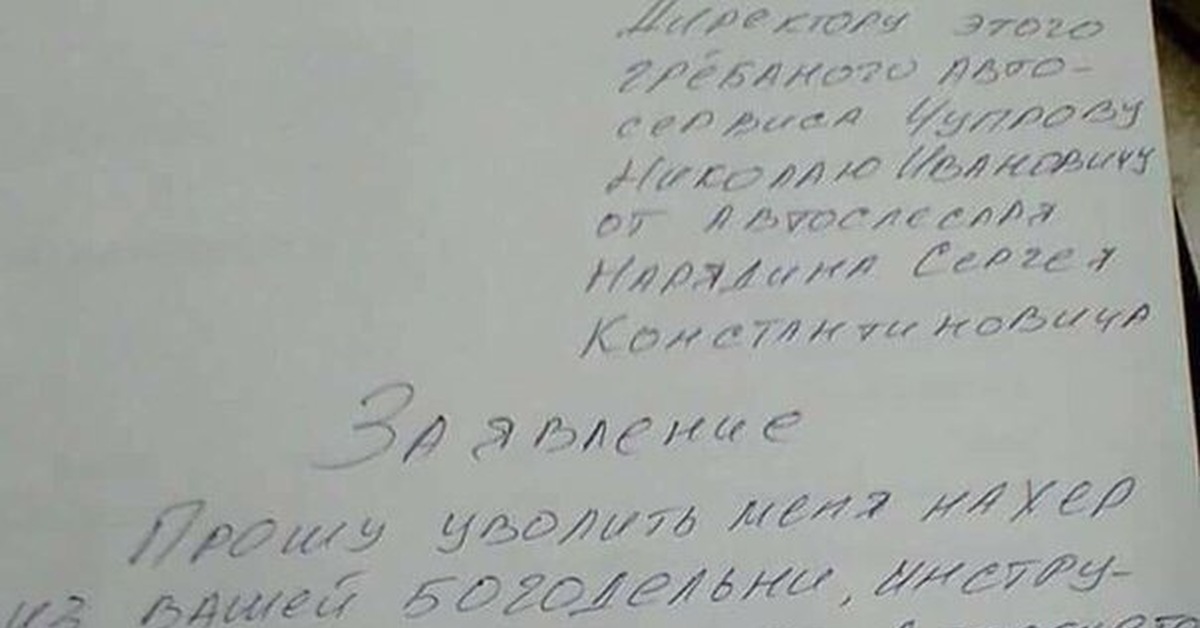 Директору этого
грёбаного авто-
сервиса Чупрову
Николаю Ивановичу
от автослесаря
Нарядина Сергея
Константиновича
Заявление
Прошу уволить меня нахер
из вашей богодельни, инстру-